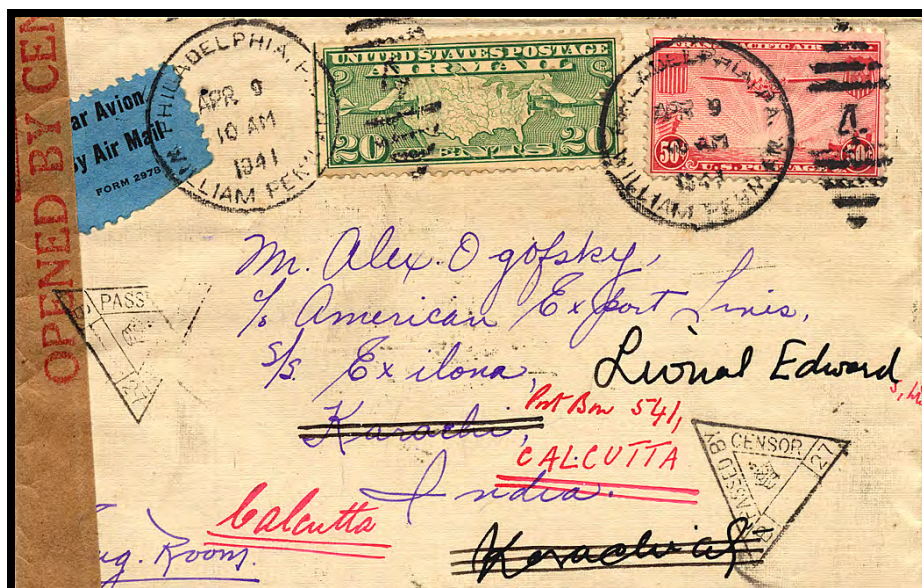 OPENED BY CEN
ar Avion
y Air Mail
FORM 2978
PHILADELPHIA, P
APR 9
10 AM
1941
WILLIAM PEN
UNITED STATES POSTAGE
AIR MAIL
20 CENTS 20
PHILADELPHIA, PA.
APR 9
10 AM
1941
WILLIAM PENN
TRANS-PACIFIC AIR
50¢ U.S. POSTAGE 50¢
4
Mr. Alex. Ogofsky,
c/o American Export Lines,
S/S. Exilona,
Lional Edward
Karachi,
Post Box 541,
CALCUTTA
India.
Calcutta
Karachi
ug. Room.
PASS
27
PASSED BY
CENSOR
27